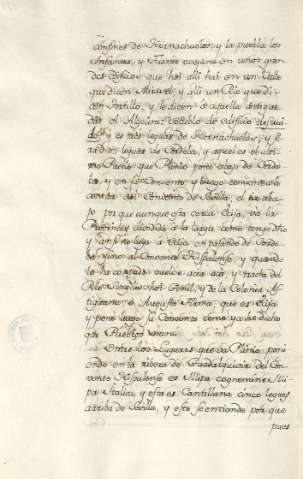 confines de Hornachuelos, y la puebla los
Infantes, y Fuente ovejuna en unos gran
des edificios que hoi alli hai en un Valle
que dicen y alli un Rio que di
cen y le dicen à aquella antigue
dad el vestibio de edificio
y es tres leguas de Hornachuelos, y
leguas de Cordoba, y aquel es el
mo Pueblo que Plinio pone abajo de Cordo
ba, y en su Convento, y luego comienza la
costa del Convento de Sevilla, el rio aba
jo porque aunque esta cerca Ecija, va la
Provincia dividida à la larga como tengo dho
y ansi no llega à Ecija en pasando de Cordo
ba, sino al Convento Hispalense, y quando
lo ha concluido vuelve acia acà, y trata del
Rio Singilis que es Genil, y de la Colonia As
tigitana, ò Augusta Firma, que es Ecija
y pone luego su Convento como ya he dicho
que Pueblos
Entre los Lugares que va Plinio poni
endo en la ribera de Guadalquivir del Con
vento Hispalense es Illipa cognomine Illi
pa Italica, y esta es Cantillana cinco leguas
arriba de Sevilla, y esto se entiende por que
pues